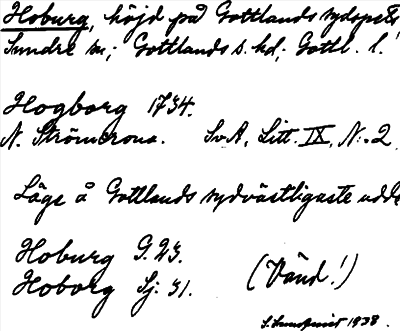 Hoburg, höjd på Gottlands sydspets
Sundre sn; Gottlands s. hd; Gottl. l.
Hogborg 1734.
N. Strömcrona. Sv.A. Litt. IX, N:. 2
Läge å Gottlands sydvästligaste udde
Hoburg G. 23.
Hoborg Sj. 31. (Vänd!)
S. Lundqvist 1938.